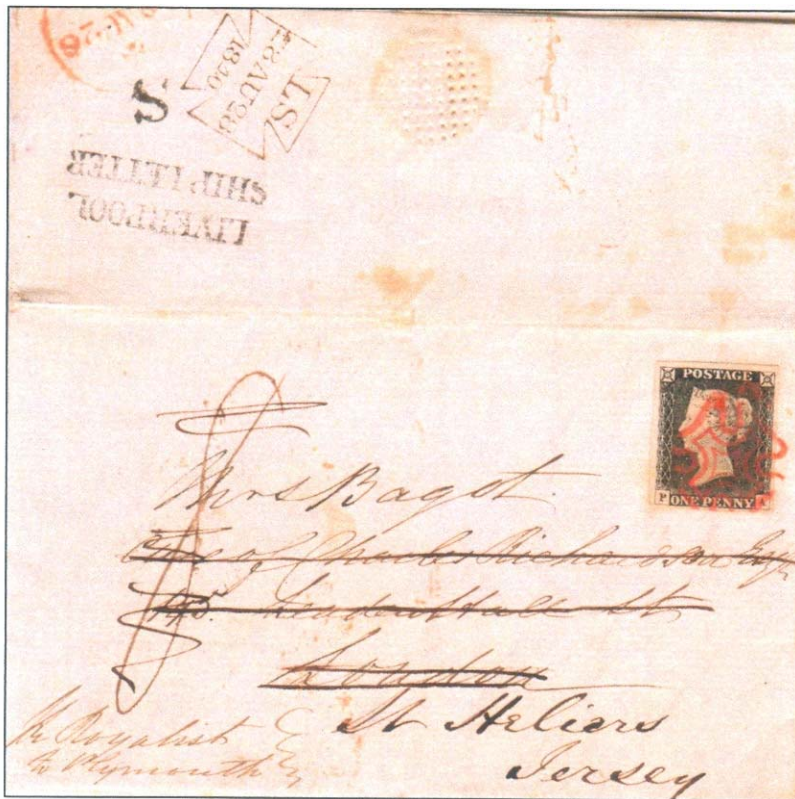 LS
28AU28
1840
S
LIVERPOOL
SHIP LETTER
POSTAGE
P ONE PENNY A
Mrs Bagot.
Care of Charles Richardson Esqr
Leadenhall St
London
St Heliers
Jersey
pr Royalist
to Plymouth